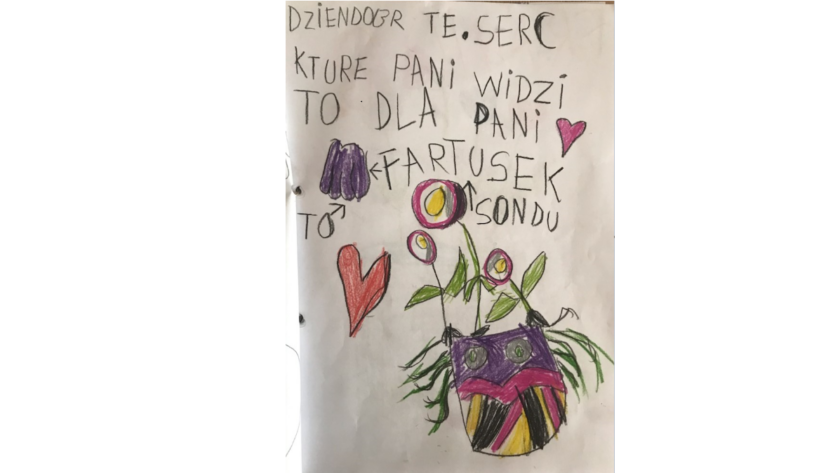 DZIENDOBR TE.SERC
KTURE PANi WiDZi
TO DLA PANi
←FARTUSEK
TO SONDU